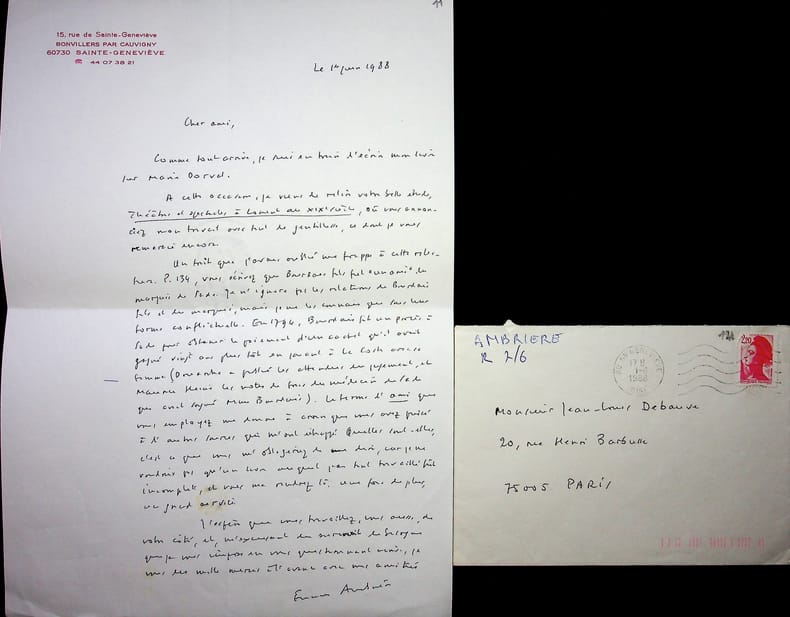 11
15, rue de Sainte-Geneviève
BONVILLERS PAR CAUVIGNY
60730 SAINTE-GENEVIÈVE
☎ 44 07 38 21
Le 1er juin 1988
Cher ami,
Comme tout arrive, je suis en train d'écrire mon livre
sur Marie Dorval.
A cette occasion, je viens de relire votre belle étude,
Théâtre et spectacles à Lorient au XIXe siècle, où vous annon-
ciez mon travail avec tant de gentillesse, ce dont je vous
remercie encore.
Un trait que j'avais oublié me frappe à cette relec-
ture. P. 134, vous écrivez que Bourdais fils fut un ami du
marquis de Sade. Je n'ignore pas les relations de Bourdais
fils et du marquis, mais je ne les connais que sous leur
forme conflictuelle. En 1794, Bourdais fit un procès à
Sade pour obtenir le paiement d'un cachet qu'il avait
gagné vingt ans plus tôt en jouant à La Coste avec sa
femme ( a publié les attendus du jugement, et
Maurice les notes de frais du médecin de Sade
que avait soigné Mme Bourdais). Le terme d'ami que
vous employez me donne à croire que vous avez puisé
à d'autres sources qui m'ont échappé. Quelles sont-elles,
c'est ce que vous m'obligeriez de me dire, car je ne
voudrais pas qu'un livre auquel j'ai tant travaillé fût
incomplet, et vous me rendrez là, une fois de plus,
un grand service.
J'espère que vous travaillez, vous aussi, de
votre côté, et, m'excusant du surcroît de besogne
que je vous impose en vous questionnant ainsi, je
vous dis mille mercis à l'avance avec mes amitiés
AMBRIERE
R 2/6
17 H
1-6
1988
OISE
2,20
Monsieur Jean-Louis Debauve
20, rue Henri Barbusse
75005 PARIS